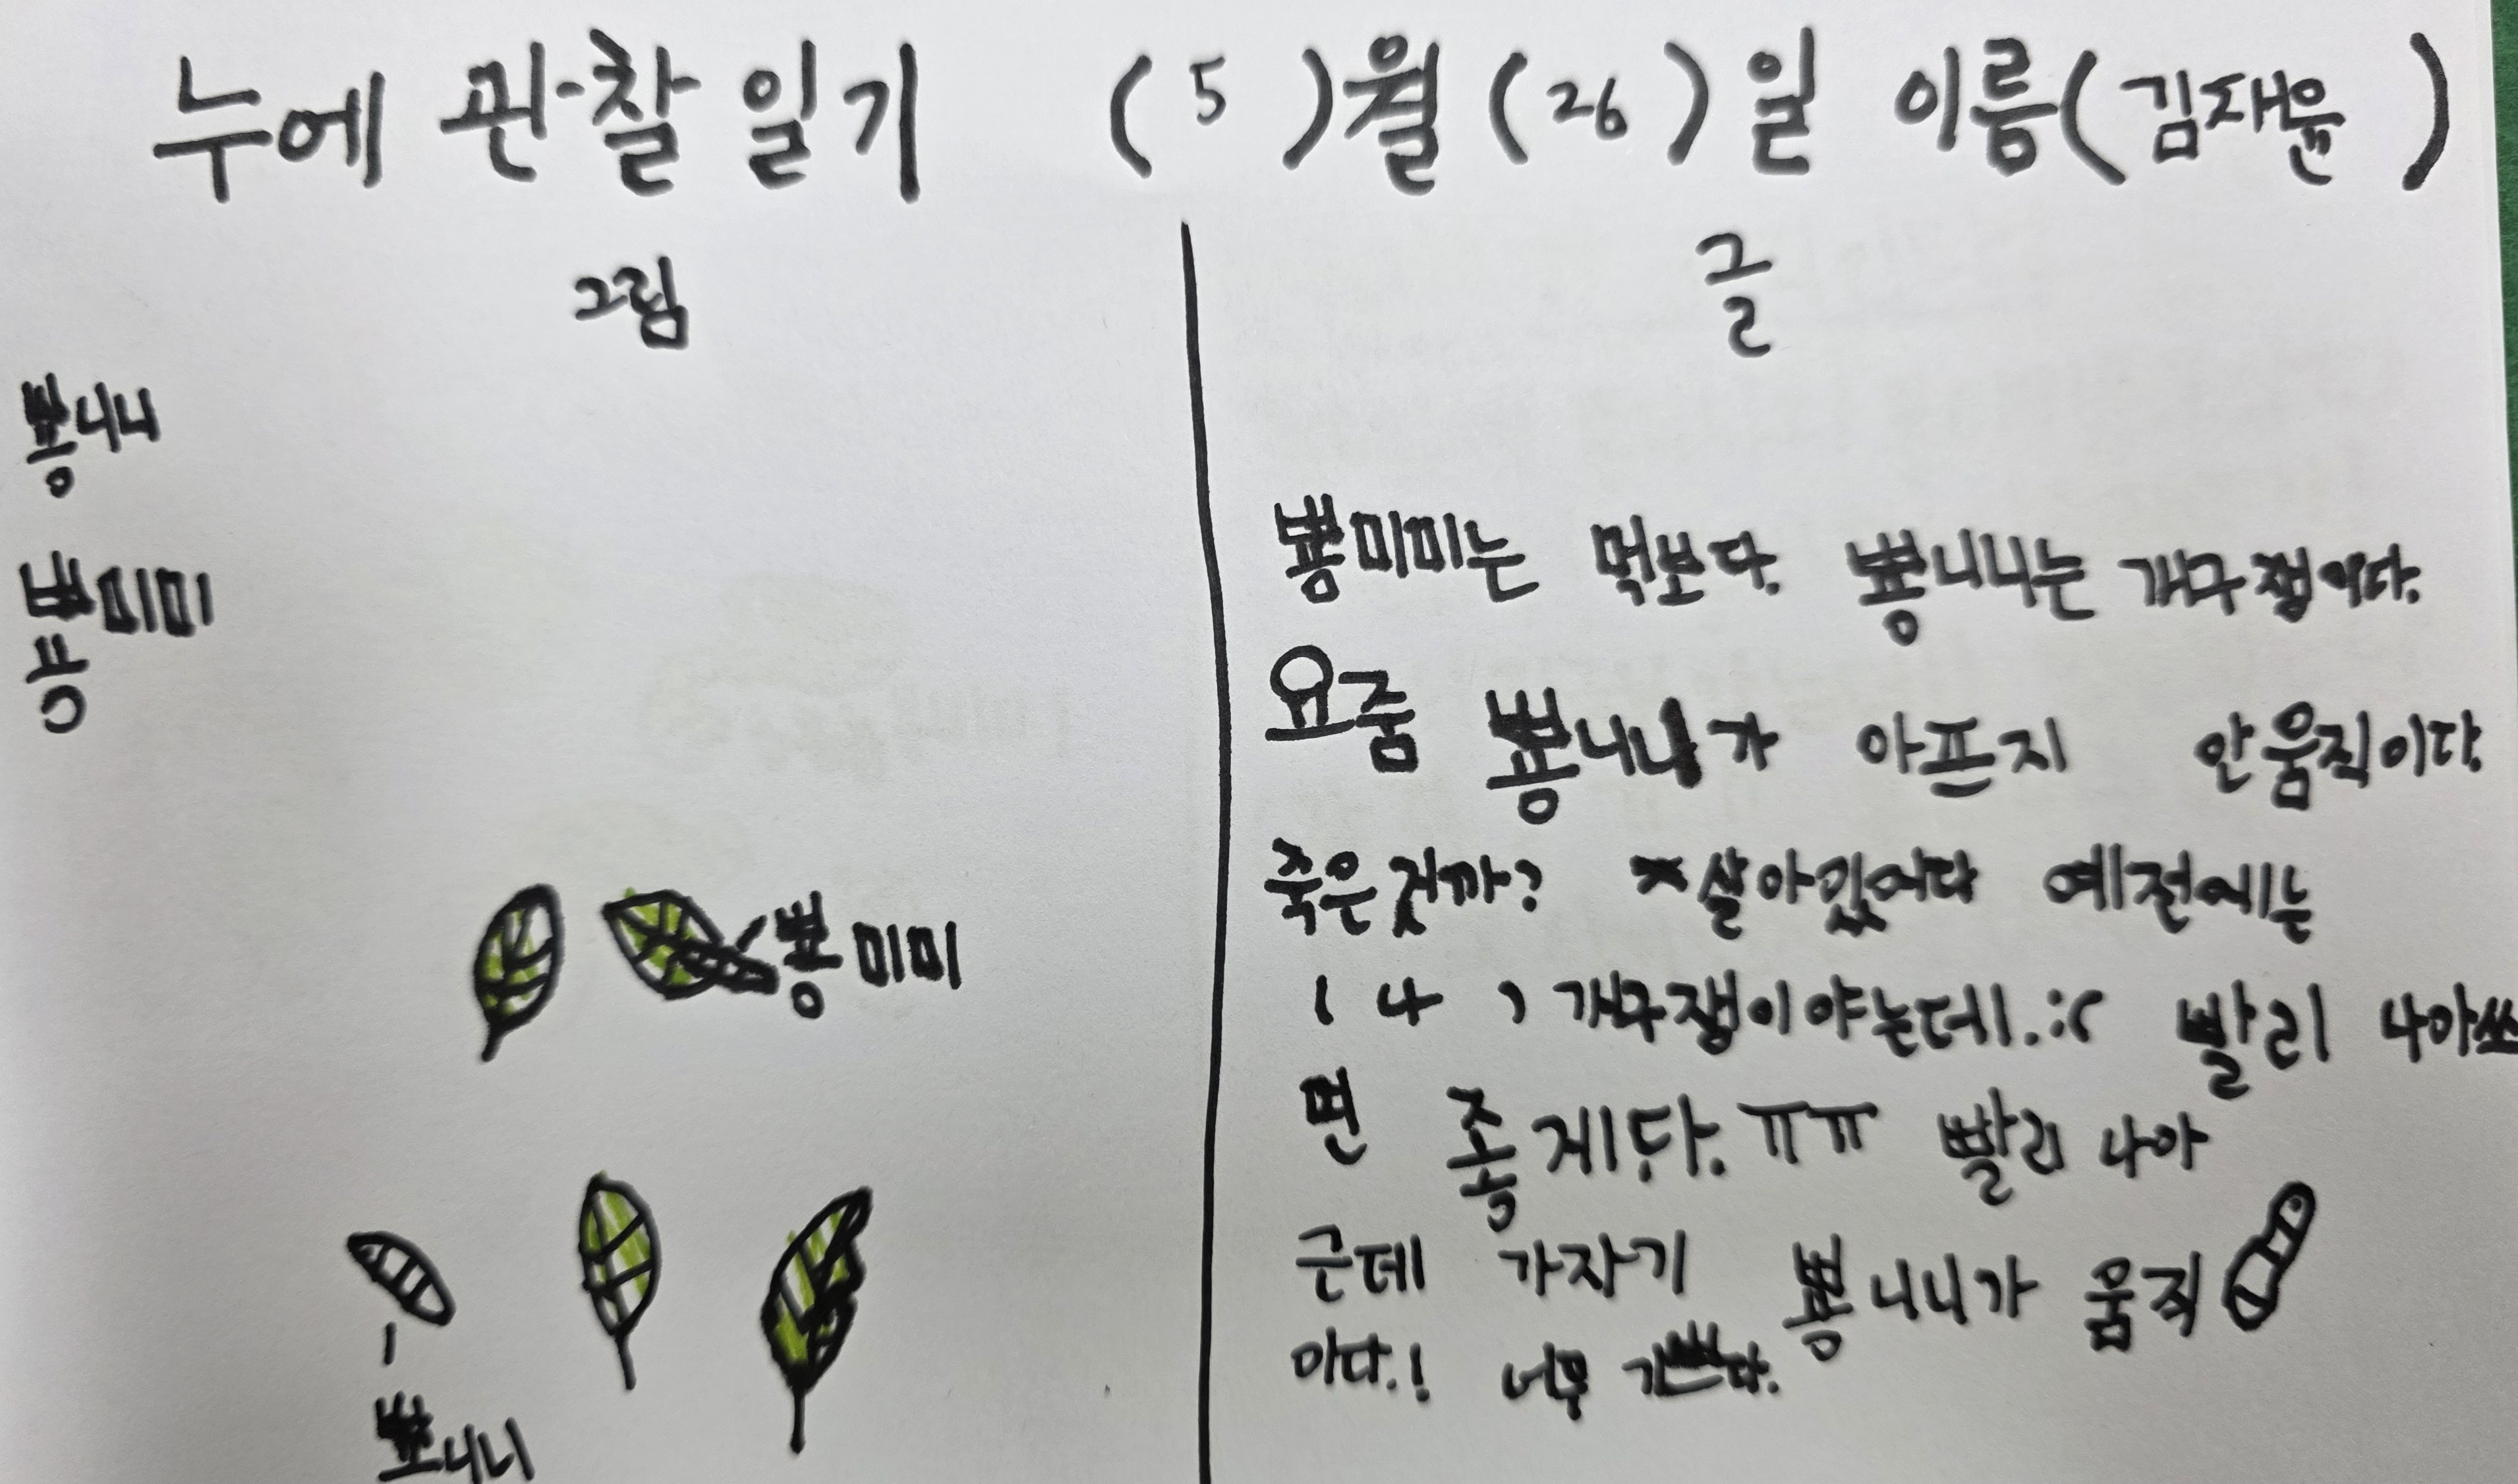 누에 관찰 일기 ( 5 )월 ( 26 )일 이름( 김재윤 )
그림
뿅니니
뿅미미
뿅미미
뿅니니
글
뿅미미는 먹보다. 뿅니니는 개구쟁이다.
요줌 뿅니니가 아프지 안움직이다.
죽은것까? *살아있어다 예전에는
( 나 ) 개구쟁이야는데.:( 빨리 나아쓰
면 좋게다. ㅠㅠ 빨리 나아
근데 가자기 뿅니니가 움직
이다.! 너무 기쁘다.